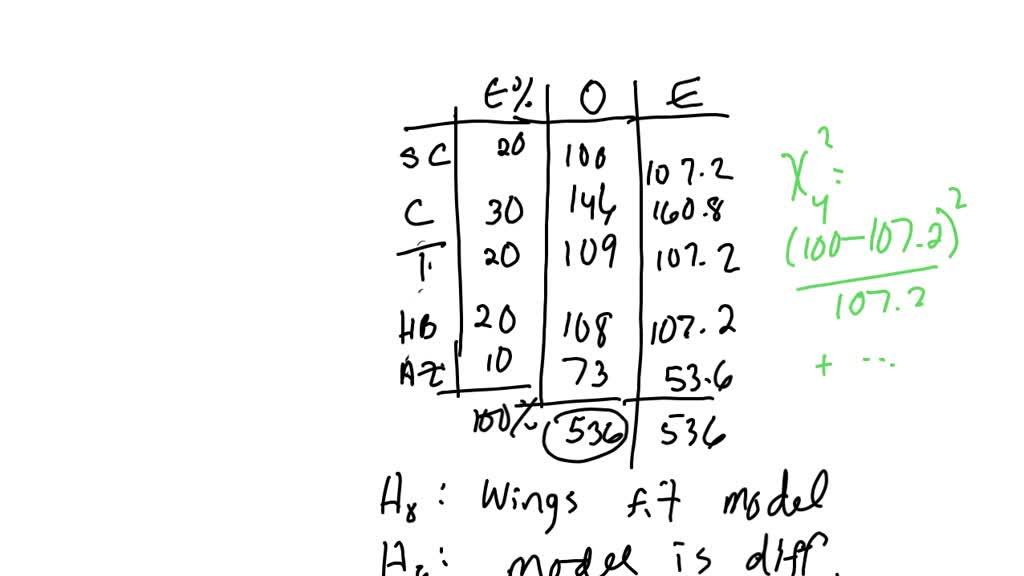 E% O E
SC 20 100 107.2
C 30 146 160.8
T. 20 109 107.2
HB 20 108 107.2
AZ 10 73 53.6
100% 536 536
χ²₄ =
(100-107.2)²
107.2
+ ...
H₀: Wings fit model
Hₐ: model is diff.